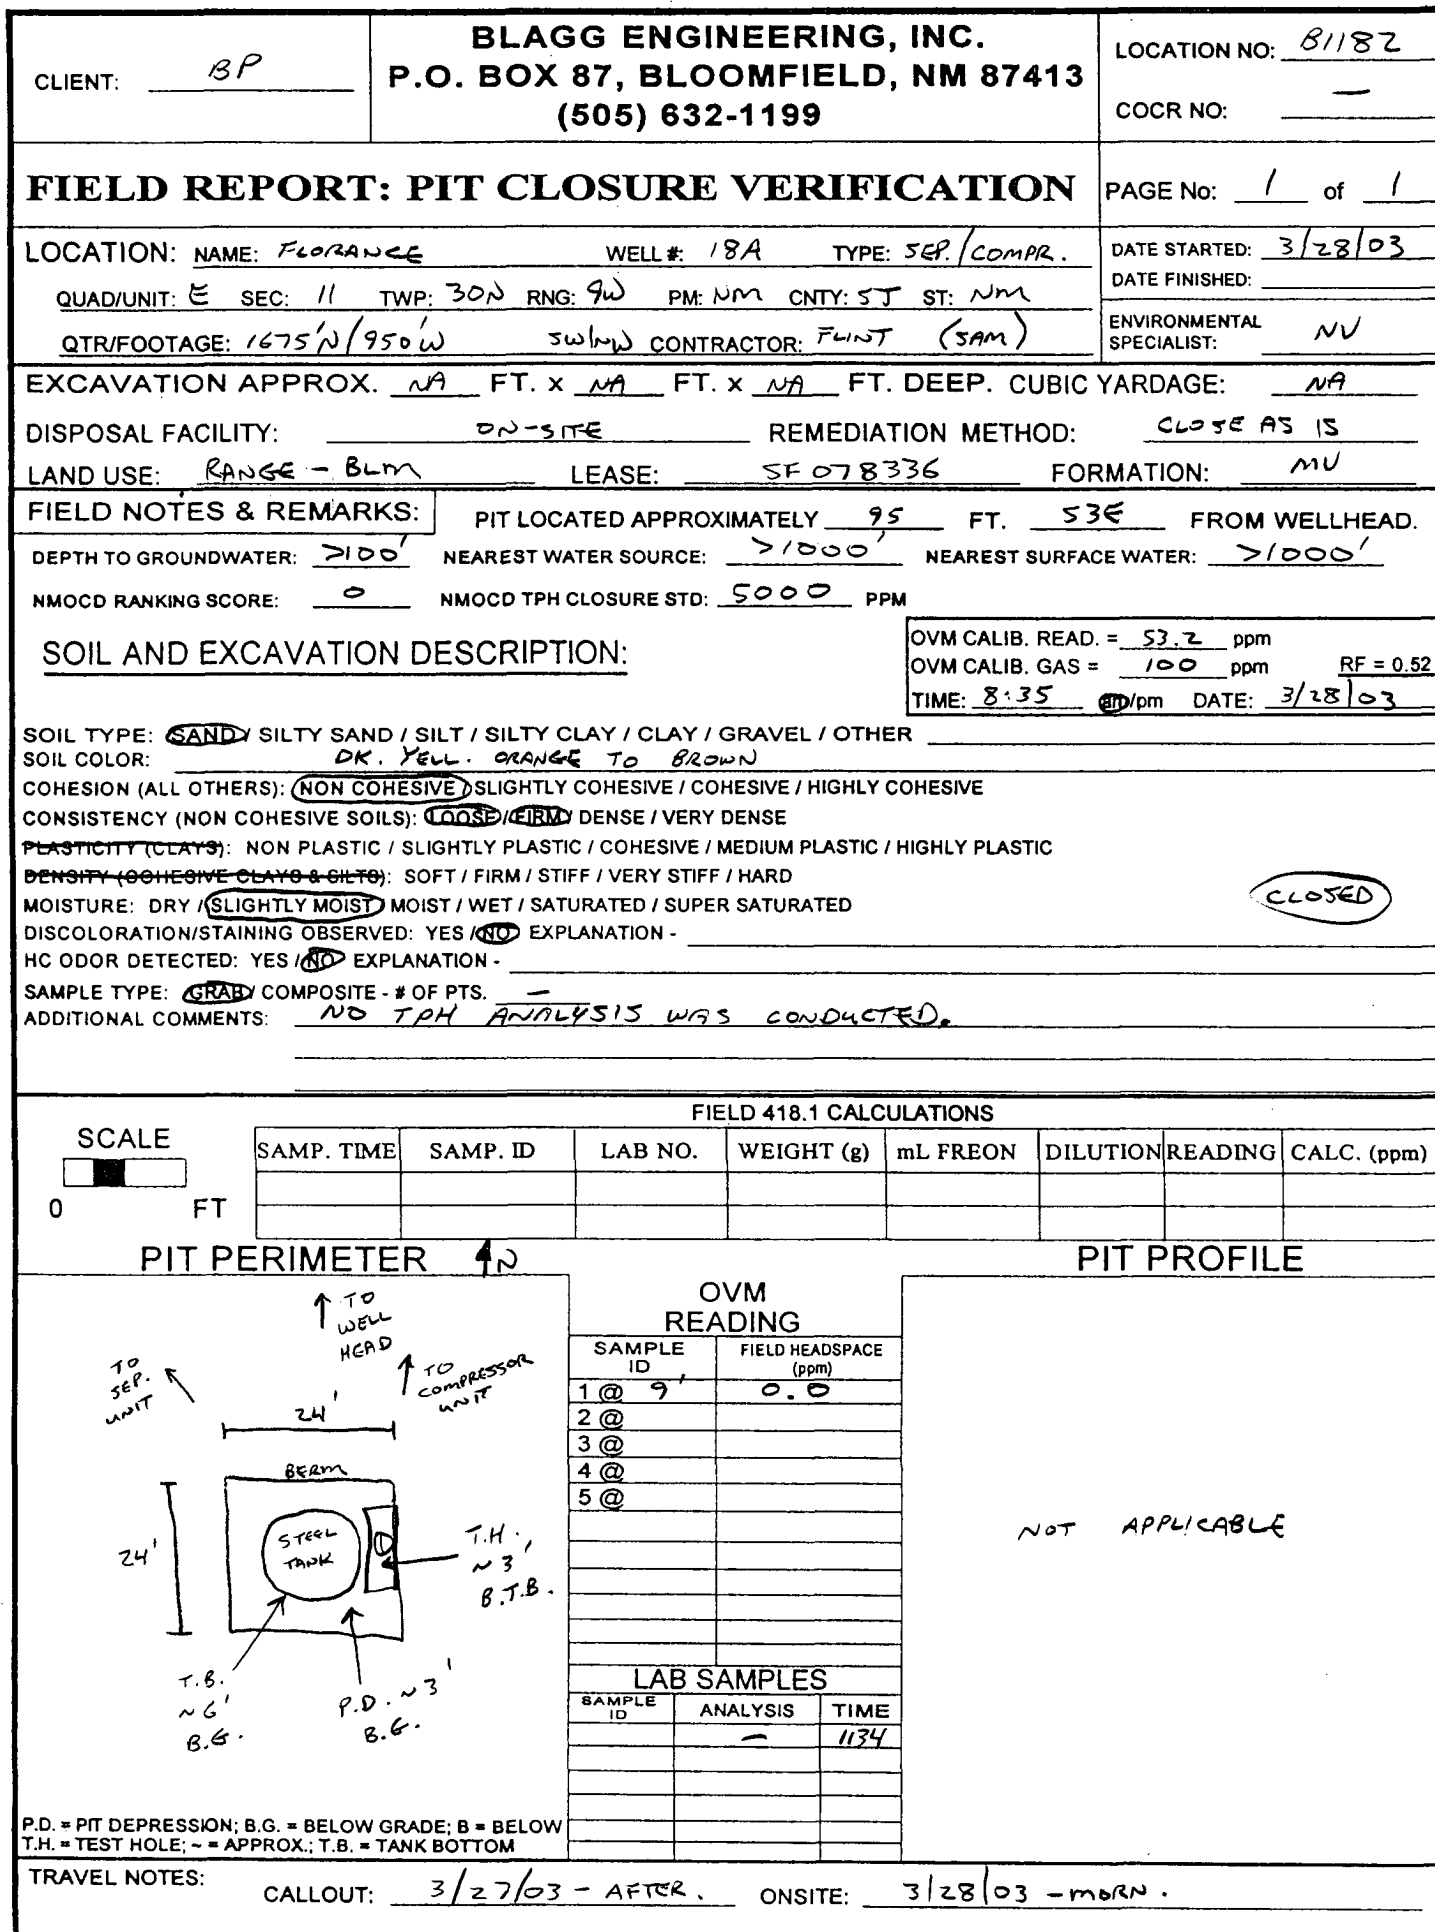 CLIENT: BP
BLAGG ENGINEERING, INC.
P.O. BOX 87, BLOOMFIELD, NM 87413
(505) 632-1199
LOCATION NO: B1182
COCR NO: —
FIELD REPORT: PIT CLOSURE VERIFICATION
PAGE No: 1 of 1
LOCATION: NAME: FLORANCE WELL #: 18A TYPE: SEP./COMPR.
QUAD/UNIT: E SEC: 11 TWP: 30N RNG: 9W PM: NM CNTY: SJ ST: NM
QTR/FOOTAGE: 1675'N/950'W SW/NW CONTRACTOR: FLINT (SAM)
DATE STARTED: 3/28/03
DATE FINISHED:
ENVIRONMENTAL SPECIALIST: NV
EXCAVATION APPROX. NA FT. x NA FT. x NA FT. DEEP. CUBIC YARDAGE: NA
DISPOSAL FACILITY: ON-SITE REMEDIATION METHOD: CLOSE AS IS
LAND USE: RANGE - BLM LEASE: SF 078336 FORMATION: MV
FIELD NOTES & REMARKS: PIT LOCATED APPROXIMATELY 95 FT. S3E FROM WELLHEAD.
DEPTH TO GROUNDWATER: >100' NEAREST WATER SOURCE: >1000' NEAREST SURFACE WATER: >1000'
NMOCD RANKING SCORE: 0 NMOCD TPH CLOSURE STD: 5000 PPM
SOIL AND EXCAVATION DESCRIPTION:
OVM CALIB. READ. = 53.2 ppm
OVM CALIB. GAS = 100 ppm RF = 0.52
TIME: 8:35 am/pm DATE: 3/28/03
SOIL TYPE: SAND / SILTY SAND / SILT / SILTY CLAY / CLAY / GRAVEL / OTHER
SOIL COLOR: DK. YELL. ORANGE TO BROWN
COHESION (ALL OTHERS): NON COHESIVE / SLIGHTLY COHESIVE / COHESIVE / HIGHLY COHESIVE
CONSISTENCY (NON COHESIVE SOILS): LOOSE / FIRM / DENSE / VERY DENSE
PLASTICITY (CLAYS): NON PLASTIC / SLIGHTLY PLASTIC / COHESIVE / MEDIUM PLASTIC / HIGHLY PLASTIC
DENSITY (COHESIVE CLAYS & SILTS): SOFT / FIRM / STIFF / VERY STIFF / HARD
MOISTURE: DRY / SLIGHTLY MOIST / MOIST / WET / SATURATED / SUPER SATURATED
CLOSED
DISCOLORATION/STAINING OBSERVED: YES / NO EXPLANATION -
HC ODOR DETECTED: YES / NO EXPLANATION -
SAMPLE TYPE: GRAB / COMPOSITE - # OF PTS. —
ADDITIONAL COMMENTS: NO TPH ANALYSIS WAS CONDUCTED.
FIELD 418.1 CALCULATIONS
SCALE
0 FT
SAMP. TIME SAMP. ID LAB NO. WEIGHT (g) mL FREON DILUTION READING CALC. (ppm)
PIT PERIMETER N
PIT PROFILE
TO WELL HEAD
TO SEP. UNIT
TO COMPRESSOR UNIT
24'
BERM
24'
STEEL TANK
T.H. ~3' B.T.B.
T.B. ~6' B.G.
P.D. ~3' B.G.
OVM READING
SAMPLE ID FIELD HEADSPACE (ppm)
1 @ 9' 0.0
2 @
3 @
4 @
5 @
NOT APPLICABLE
LAB SAMPLES
SAMPLE ID ANALYSIS TIME
— 1134
P.D. = PIT DEPRESSION; B.G. = BELOW GRADE; B = BELOW
T.H. = TEST HOLE; ~ = APPROX.; T.B. = TANK BOTTOM
TRAVEL NOTES:
CALLOUT: 3/27/03 - AFTER. ONSITE: 3/28/03 - MORN.